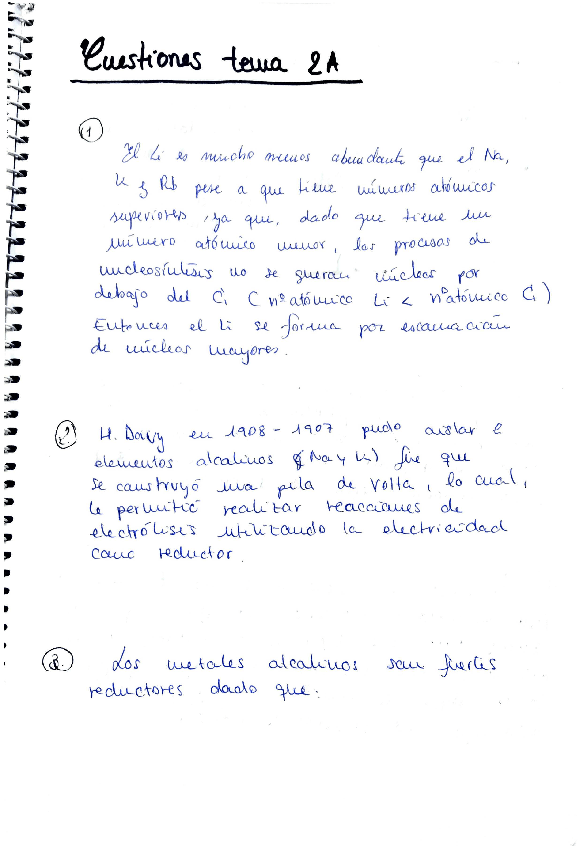 Cuestiones tema 2A
1
El Li es mucho menos abundante que el Na,
K y Rb pese a que tiene números atómicos
superiores, ya que, dado que tiene un
número atómico menor, las procesas de
nucleosíntisis no se gueran núcleos por
debajo del C, ( nº atómico Li < nº atómico C )
Entonces el Li se forma por escamación
de núcleos mayores.
2.
H. Davy en 1908 - 1907 pudo aislar 2
elementos alcalinos (Na y Li) fue que
se construyó una pila de Volta, lo cual,
le permitió realizar reacciones de
electrólisis utilizando la electricidad
como reductor.
3.
Los metales alcalinos son fuertes
reductores dado que: